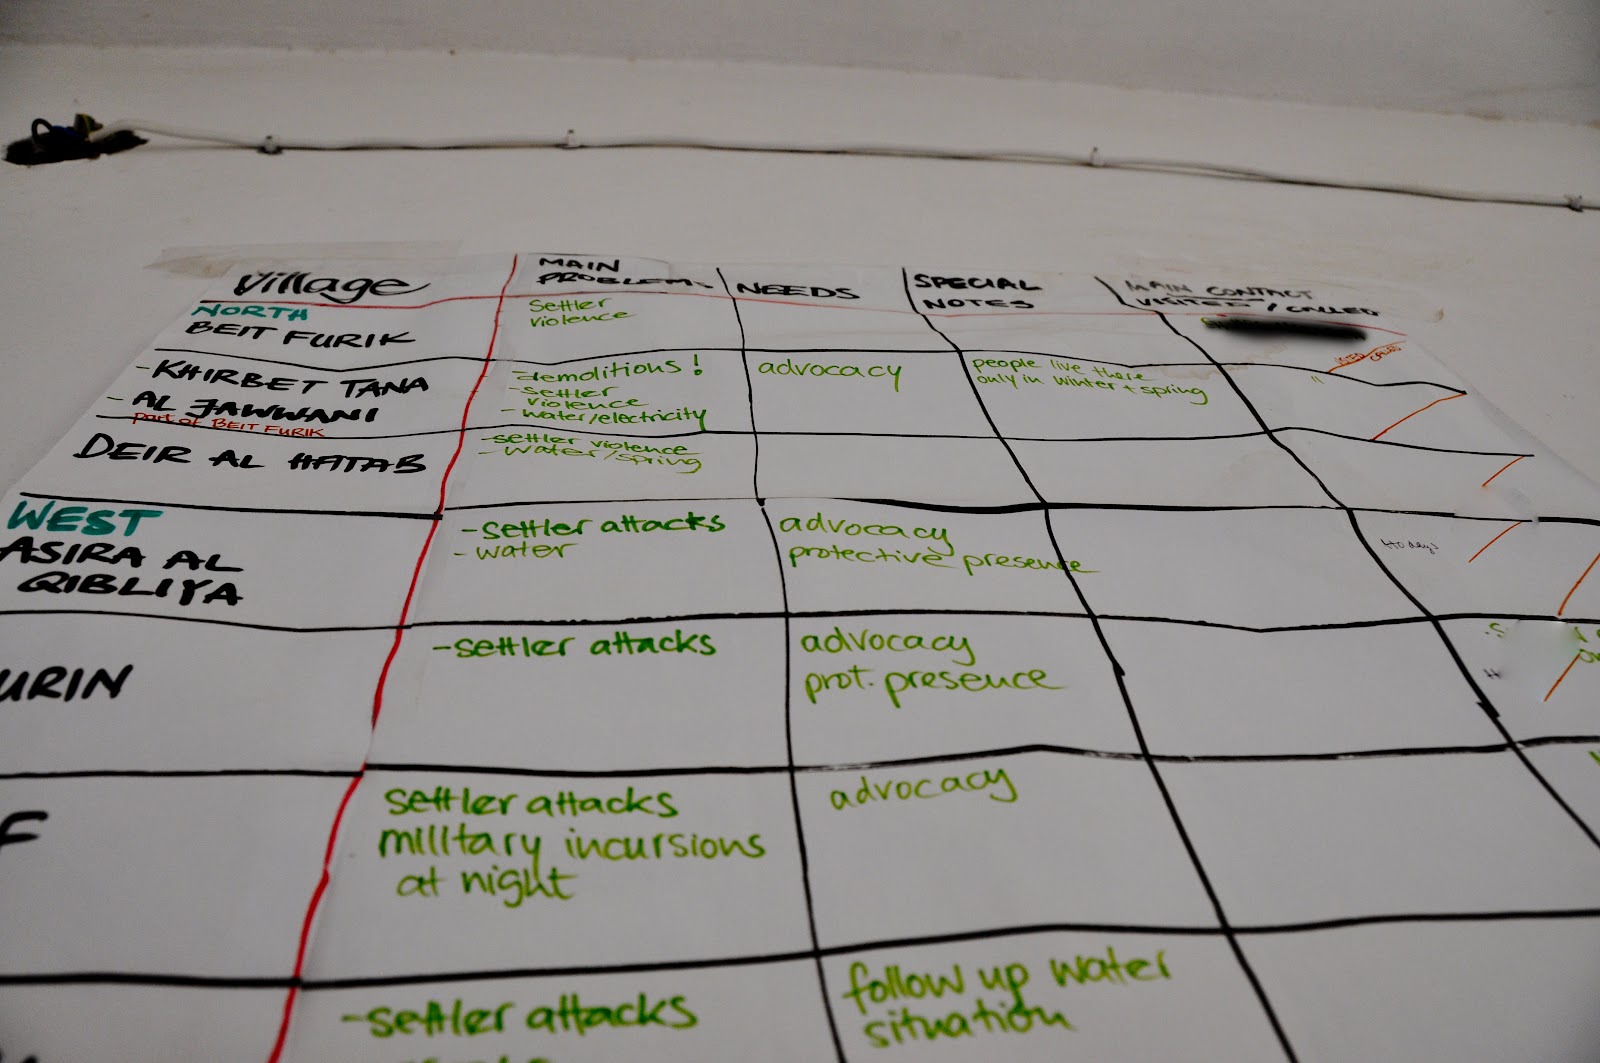 Village
MAIN
PROBLEMS
NEEDS
SPECIAL
NOTES
MAIN CONTACT
VISITED / CALLED
NORTH
BEIT FURIK
Settler
violence
-KHIRBET TANA
- AL JAWWANI
part of BEIT FURIK
-demolitions!
-settler
violence
- water/electricity
advocacy
people live there
only in winter + spring
"
VISITED CALLED
DEIR AL HATAB
-settler violence
-water/spring
WEST
ASIRA AL
QIBLIYA
-settler attacks
- water
advocacy
protective presence
URIN
-settler attacks
advocacy
prot. presence
F
settler attacks
military incursions
at night
advocacy
-settler attacks
follow up water
situation